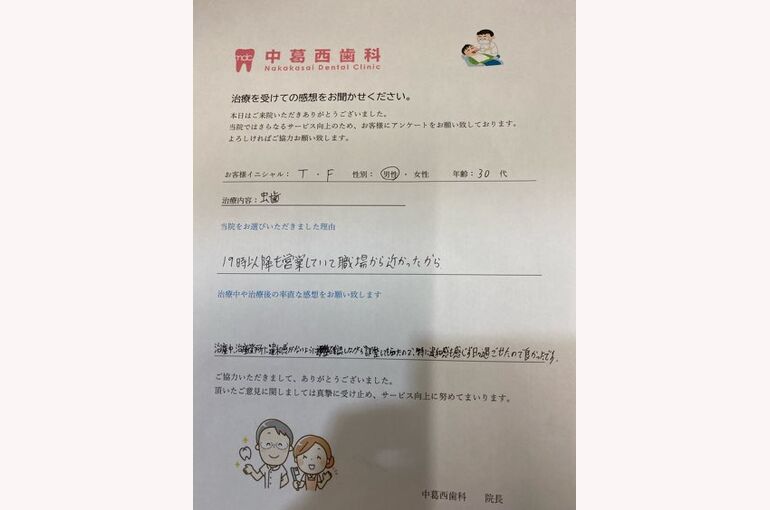 TDC
中葛西歯科
Nakakasai Dental Clinic
治療を受けての感想をお聞かせください。
本日はご来院いただきありがとうございました。
当院ではさらなるサービス向上のため、お客様にアンケートをお願い致しております。
よろしければご協力お願い致します。
お客様イニシャル: T ・ F 性別: 男性 ・ 女性 年齢: 30 代
治療内容: 虫歯
当院をお選びいただきました理由
19時以降も営業していて職場から近かったから
治療中や治療後の率直な感想をお願い致します
治療中、治療箇所に違和感がないように確認しながら調整して 特に違和感も感じず日々過ごせたので良かったです。
ご協力いただきまして、ありがとうございました。
頂いたご意見に関しましては真摯に受け止め、サービス向上に努めてまいります。
中葛西歯科 院長